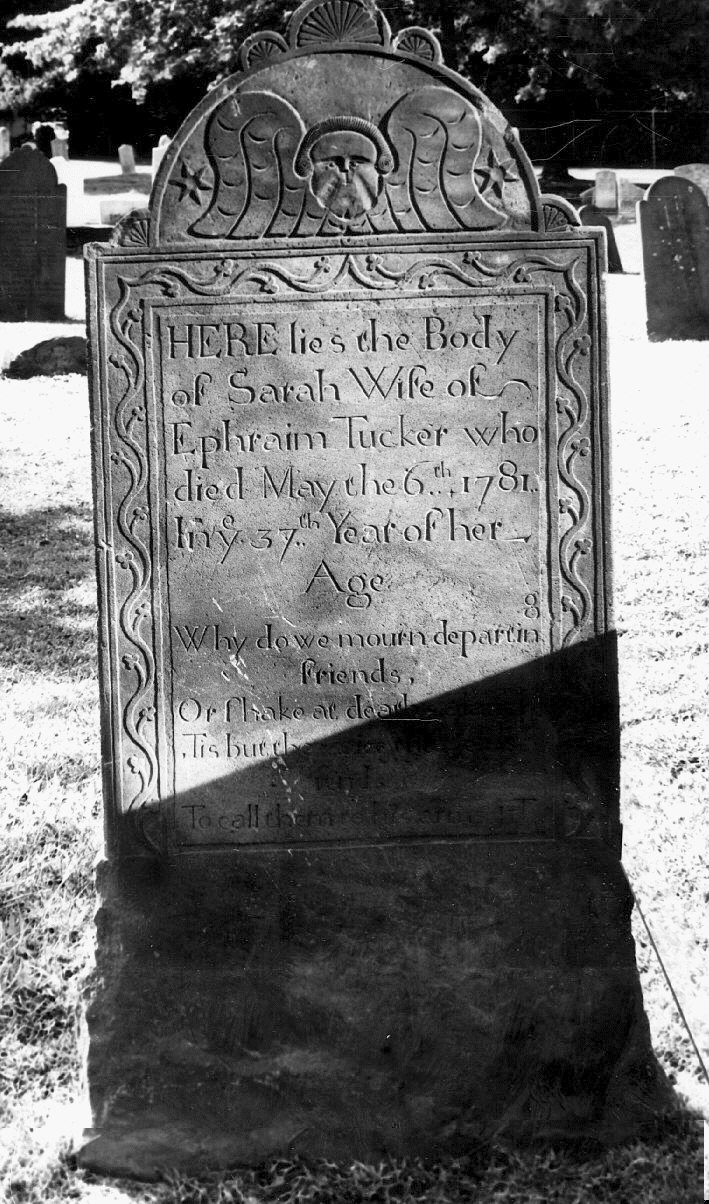 HERE lies the Body
of Sarah Wife of
Ephraim Tucker who
died May the 6th 1781.
In ye 37th Year of her
Age
Why do we mourn departin
g
friends,
Or shake at death
Tis but the
To call them to his arms